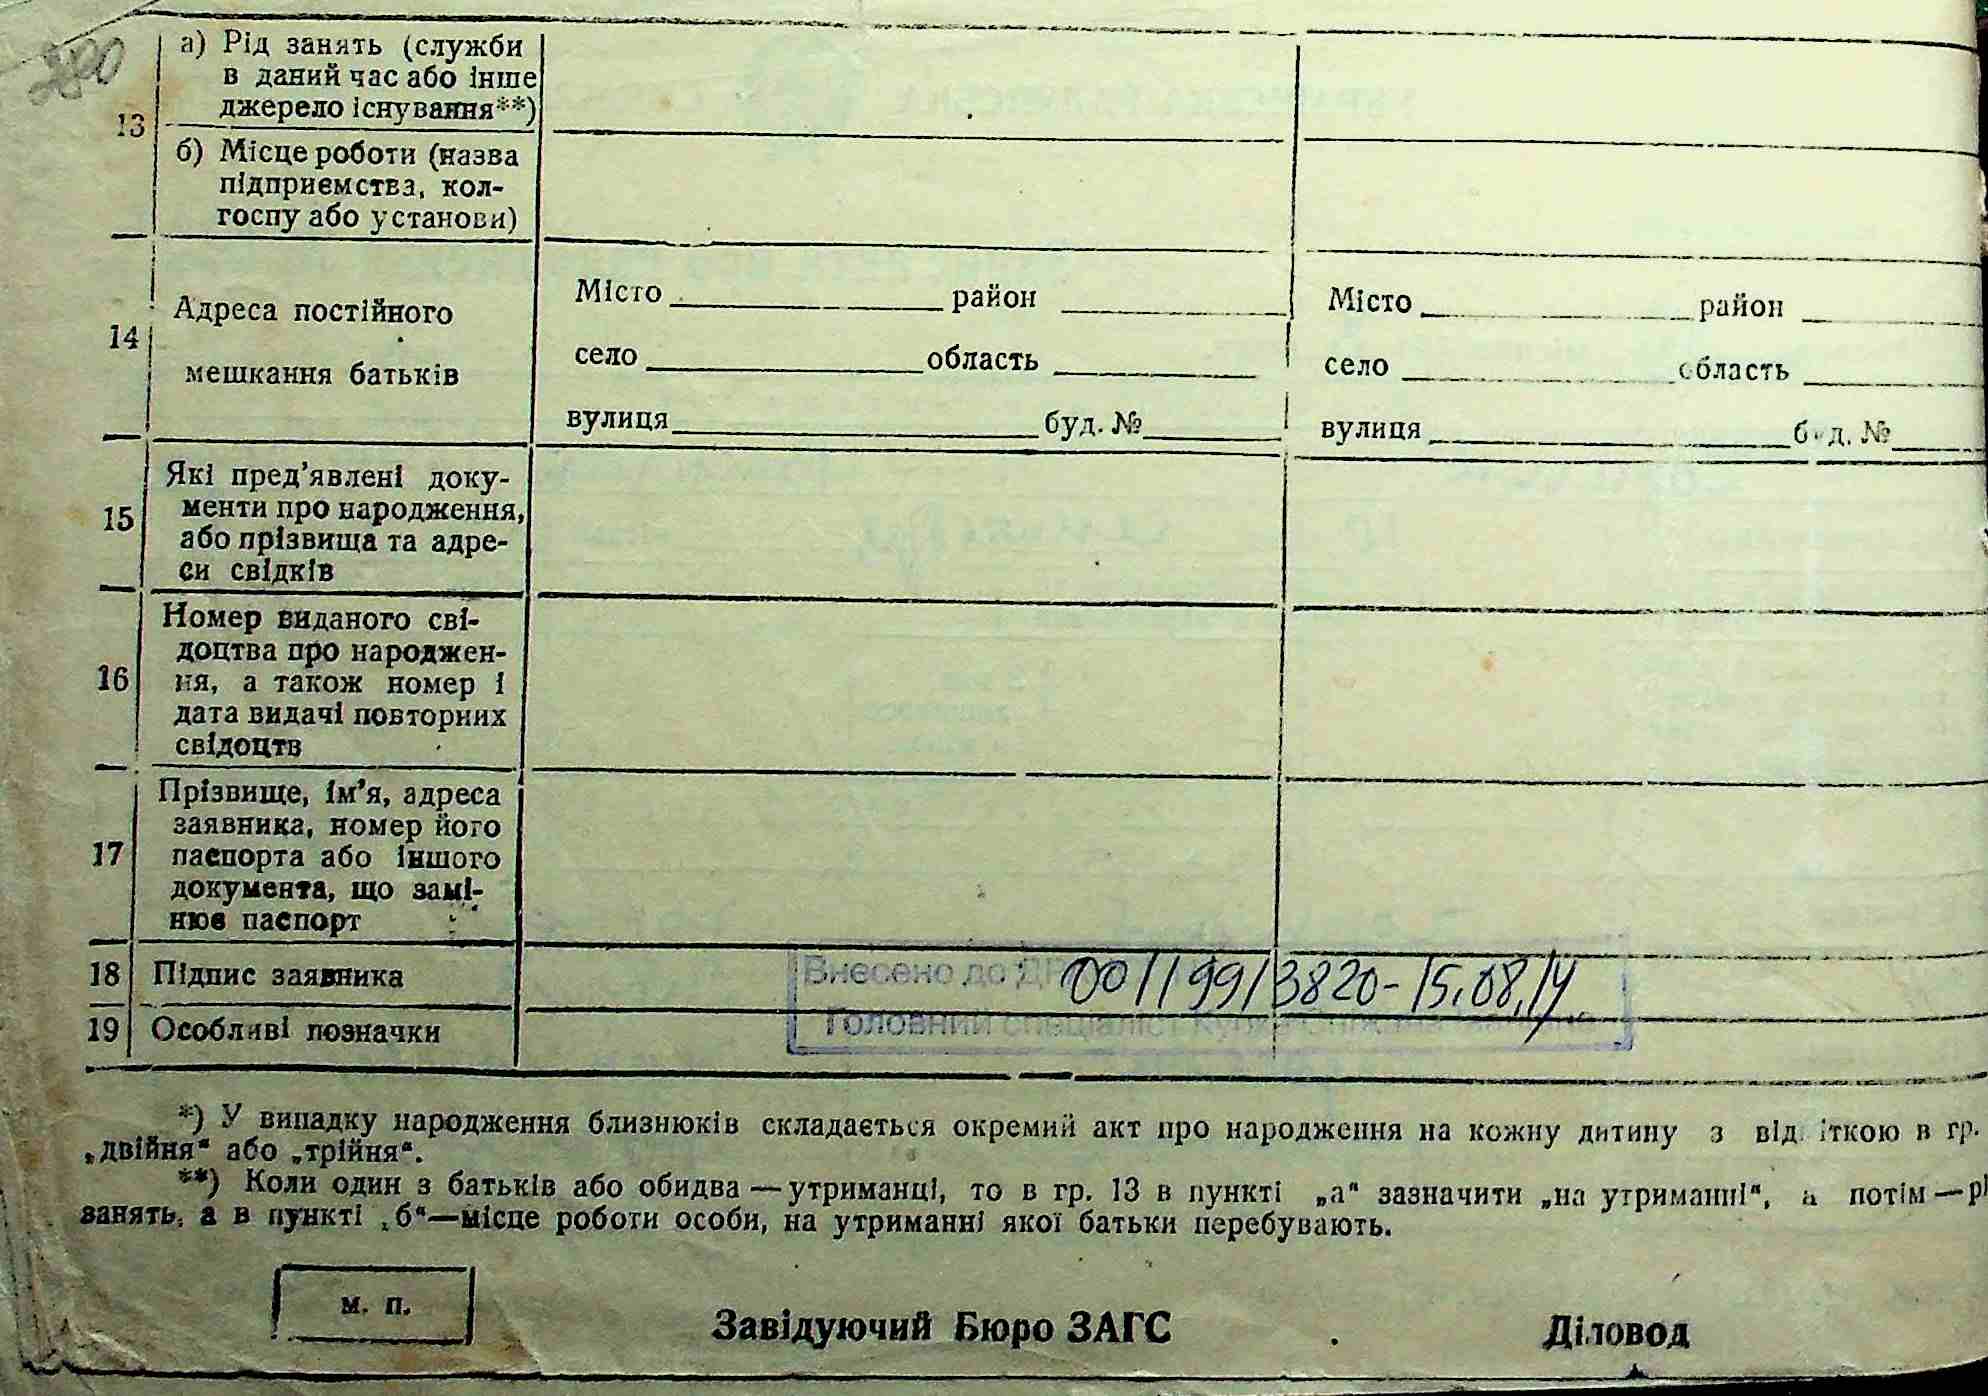 280
13
а) Рід занять (служби
в даний час або інше
джерело існування**)
б) Місце роботи (назва
підприємства, кол-
госпу або установи)
14
Адреса постійного
мешкання батьків
Місто район
село область
вулиця буд. №
Місто район
село область
вулиця буд. №
15
Які пред'явлені доку-
менти про народження,
або прізвища та адре-
си свідків
16
Номер виданого сві-
доцтва про народжен-
ня, а також номер і
дата видачі повторних
свідоцтв
17
Прізвище, ім'я, адреса
заявника, номер його
паспорта або іншого
документа, що замі-
нює паспорт
18 Підпис заявника
Внесено до 00119913820-15.08.14
19 Особливі позначки
Головний спеціаліст
*) У випадку народження близнюків складається окремий акт про народження на кожну дитину з відміткою в гр.
„двійня“ або „трійня“.
**) Коли один з батьків або обидва — утриманці, то в гр. 13 в пункті „а“ зазначити „на утриманні“, а потім — рі
занять, а в пункті „б“—місце роботи особи, на утриманні якої батьки перебувають.
м. п.
Завідуючий Бюро ЗАГС Діловод